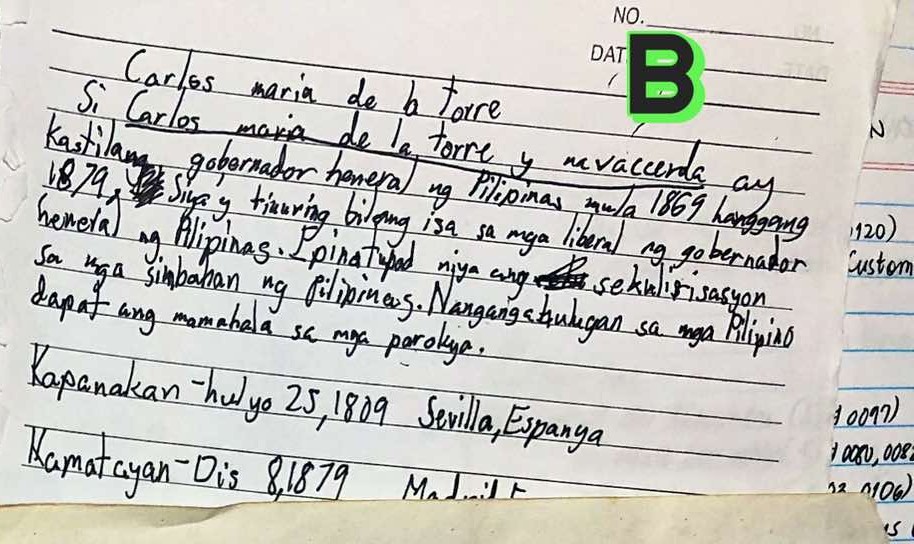 NO.
DAT
B
Carlos maria de la Torre
Si Carlos maria de la Torre y navaccerda ay
Kastilang gobernador heneral ng Pilipinas mula 1869 hanggang
1879. Siya y tinuring bilang isa sa mga liberal ng gobernador
heneral ng Pilipinas. Ipinatupad niya ang sekularisasyon
sa mga simbahan ng Pilipinas. Nangangahulugan sa mga Pilipino
dapat ang mamahala sa mga parokya.
Kapanakan - hulyo 25, 1809 Sevilla, Espanya
Kamatayan - Dis 8, 1879
N
120)
Custom
0097)
0080, 008
0106)